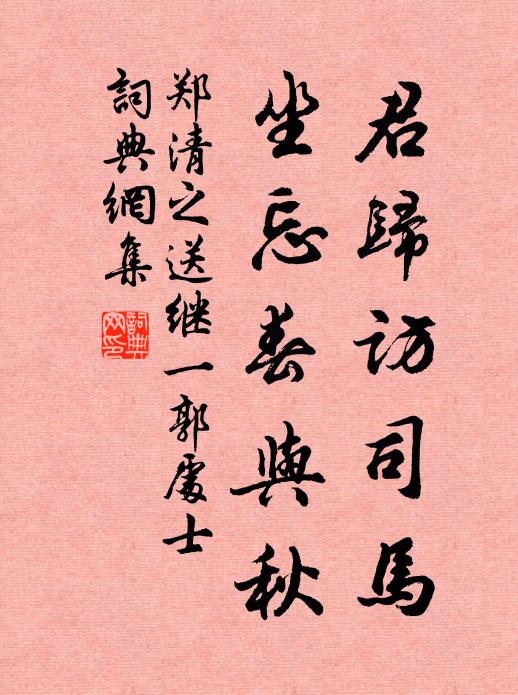 君歸訪司馬
坐忘春與秋
郑清之送继一郭處士
詞典網集
詞典網印